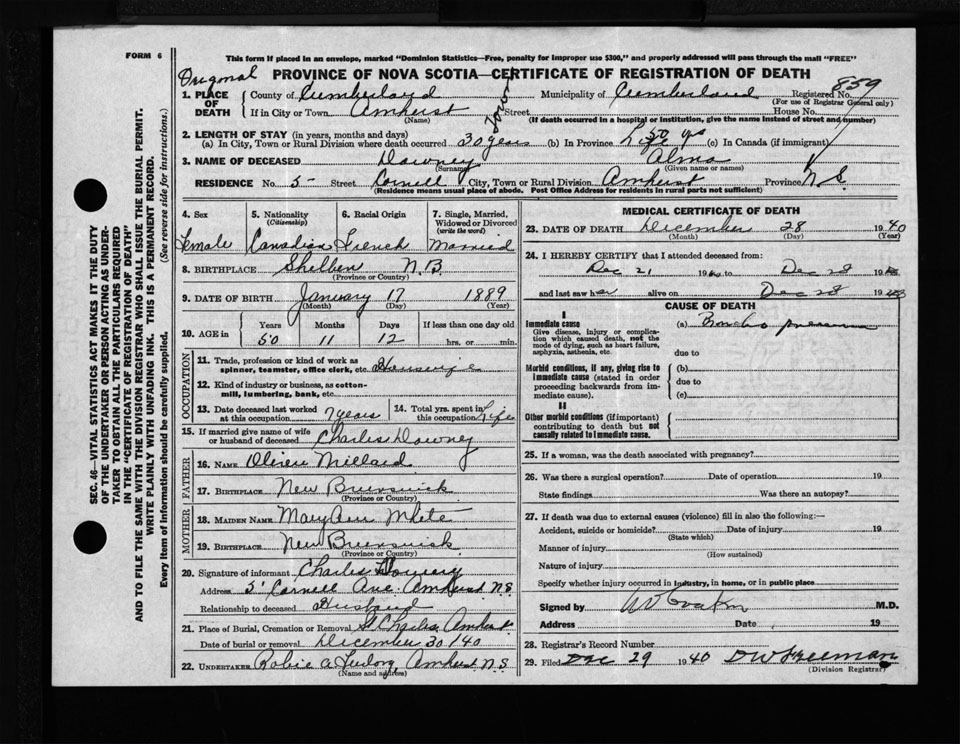 FORM 6
This form if placed in an envelope, marked "Dominion Statistics—Free, penalty for improper use $300," and properly addressed will pass through the mail "FREE"
Original
PROVINCE OF NOVA SCOTIA—CERTIFICATE OF REGISTRATION OF DEATH
859
1. PLACE OF DEATH County of Cumberland Municipality of Cumberland Registered No.
(For use of Registrar General only)
If in City or Town Amherst Street House No.
(Name) (If death occurred in a hospital or institution, give the name instead of street and number)
2. LENGTH OF STAY (in years, months and days)
(a) In City, Town or Rural Division where death occurred 30 years (b) In Province 50 yrs (c) In Canada (if immigrant)
3. NAME OF DECEASED Downey Alma
(Surname) (Given name or names)
RESIDENCE No. 5 Street Cornell City, Town or Rural Division Amherst Province N.S.
(Residence means usual place of abode. Post Office Address for residents in rural parts not sufficient)
4. Sex 5. Nationality (Citizenship) 6. Racial Origin 7. Single, Married, Widowed or Divorced (write the word)
Female Canadian French Married
8. BIRTHPLACE N.B.
(Province or Country)
9. DATE OF BIRTH January 17 1889
(Month) (Day) (Year)
10. AGE in Years Months Days If less than one day old
50 11 12 hrs. or min.
OCCUPATION
11. Trade, profession or kind of work as spinner, teamster, office clerk, etc. Housewife
12. Kind of industry or business, as cotton-mill, lumbering, bank, etc.
13. Date deceased last worked at this occupation 7 years 14. Total yrs. spent in this occupation Life
15. If married give name of wife or husband of deceased Charles Downey
FATHER
16. NAME Millard
17. BIRTHPLACE New Brunswick
(Province or Country)
MOTHER
18. MAIDEN NAME Mary Ann White
19. BIRTHPLACE New Brunswick
(Province or Country)
20. Signature of informant Charles Downey
Address 5 Cornell Ave Amherst N.S.
Relationship to deceased Husband
21. Place of Burial, Cremation or Removal St Charles Amherst
Date of burial or removal December 30 / 40
22. UNDERTAKER Amherst N.S.
(Name and address)
MEDICAL CERTIFICATE OF DEATH
23. DATE OF DEATH December 28 1940
(Month) (Day) (Year)
24. I HEREBY CERTIFY that I attended deceased from:
Dec 21 1940 to Dec 28 19
and last saw her alive on Dec 28 19
CAUSE OF DEATH
I
Immediate cause (a) Broncho pneumonia
Give disease, injury or complication which caused death, not the mode of dying, such as heart failure, asphyxia, asthenia, etc.
due to
Morbid conditions, if any, giving rise to immediate cause (stated in order proceeding backwards from immediate cause).
(b)
due to
(c)
II
Other morbid conditions (if important) contributing to death but not causally related to immediate cause.
25. If a woman, was the death associated with pregnancy?
26. Was there a surgical operation? Date of operation 19
State findings Was there an autopsy?
27. If death was due to external causes (violence) fill in also the following:—
Accident, suicide or homicide? Date of injury 19
(State which)
Manner of injury
(How sustained)
Nature of injury
Specify whether injury occurred in industry, in home, or in public place
Signed by M.D.
Address Date 19
28. Registrar's Record Number
29. Filed Dec 29 1940 D W Freeman
(Division Registrar)
SEC. 46—VITAL STATISTICS ACT MAKES IT THE DUTY
OF THE UNDERTAKER OR PERSON ACTING AS UNDER-
TAKER TO OBTAIN ALL THE PARTICULARS REQUIRED
IN THE "CERTIFICATE OF REGISTRATION OF DEATH"
AND TO FILE THE SAME WITH THE DIVISION REGISTRAR WHO SHALL ISSUE THE BURIAL PERMIT.
WRITE PLAINLY WITH UNFADING INK. THIS IS A PERMANENT RECORD.
Every item of information should be carefully supplied. (See reverse side for instructions.)